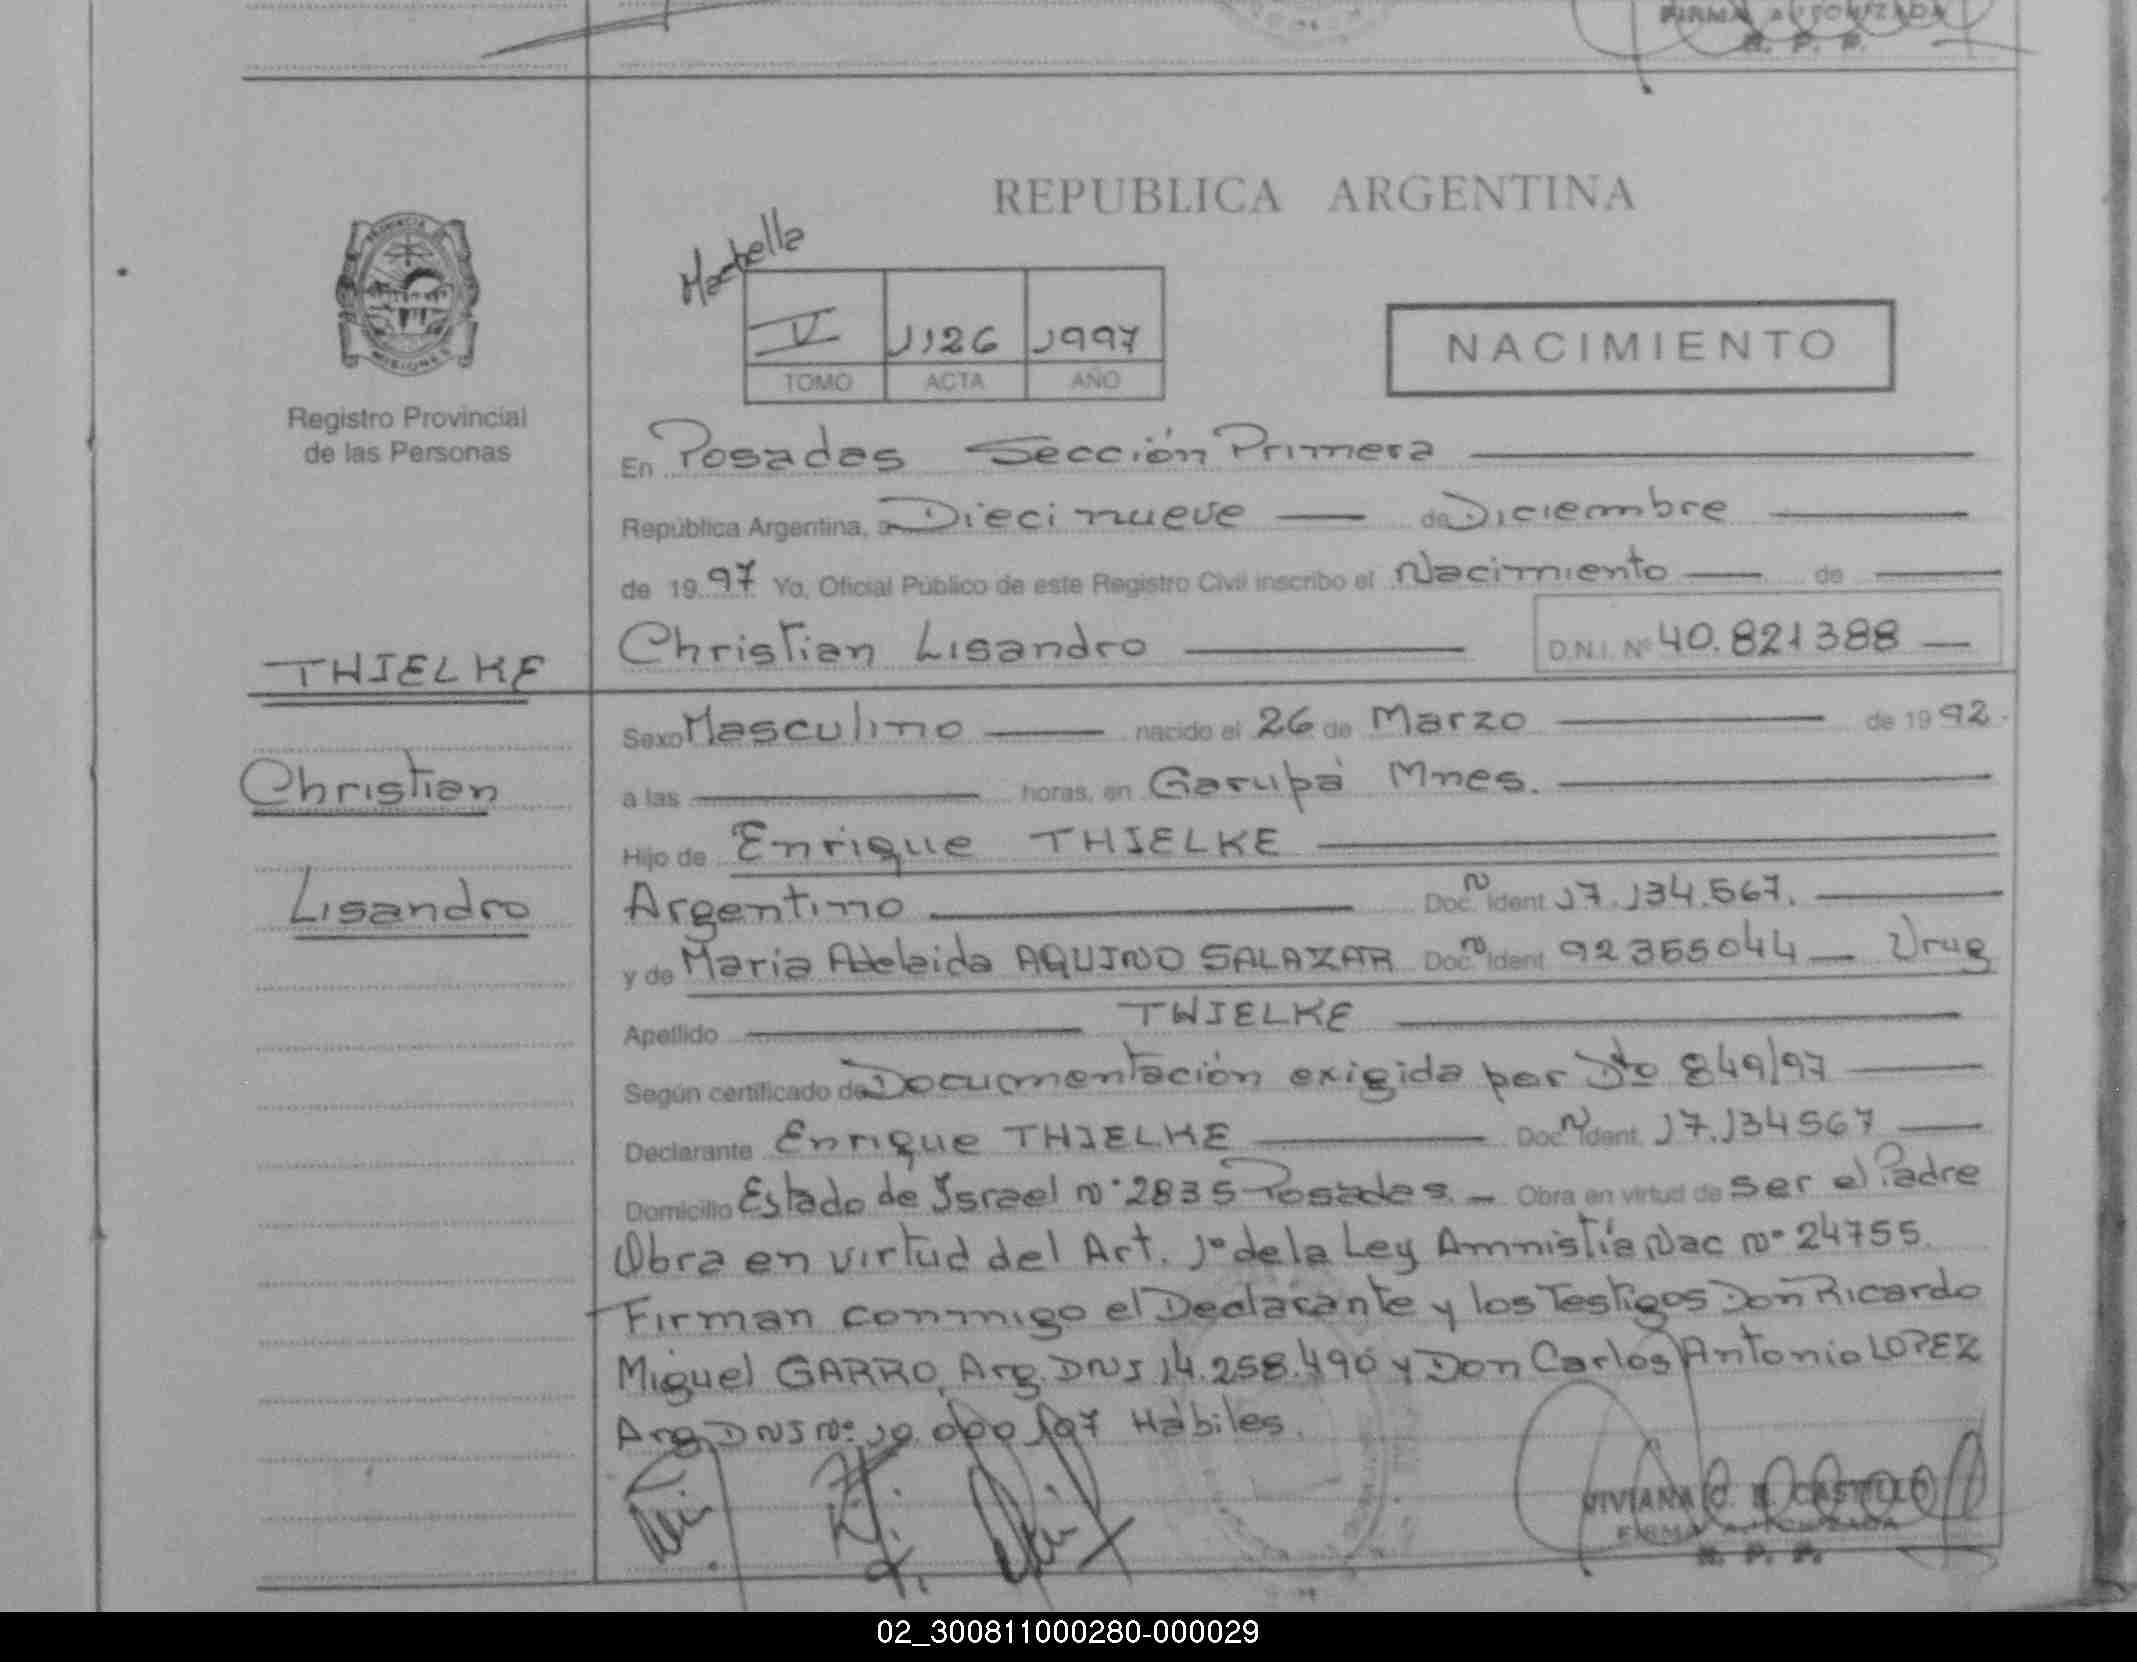 FIRMA AUTORIZADA
R. P. P.
REPUBLICA ARGENTINA
PROVINCIA DE
MISIONES
Registro Provincial
de las Personas
V 1126 1997
TOMO ACTA AÑO
NACIMIENTO
En Posadas Sección Primera
República Argentina, a Diecinueve de Diciembre
de 1997 Yo, Oficial Público de este Registro Civil inscribo el Nacimiento de
Christian Lisandro D.N.I. Nº 40.821388
THIELKE
Christian
Lisandro
Sexo Masculino nacido el 26 de Marzo de 1992.
a las horas, en Garupá Mnes.
Hijo de Enrique THIELKE
Argentino Doc. N Ident 17.134.567.
y de Maria Adelaida AQUINO SALAZAR Doc. N Ident 92355044 Urug
Apellido THIELKE
Según certificado de Documentación exigida por Dto 849/97
Declarante Enrique THIELKE Doc. N Ident. 17.134567
Domicilio Estado de Israel nº 2835 Posadas. Obra en virtud de ser el Padre
Obra en virtud del Art. 1º de la Ley Amnistía Nac nº 24755.
Firman conmigo el Declarante y los Testigos Don Ricardo
Miguel GARRO, Arg. DNI 14.258.490 y Don Carlos Antonio LOPEZ
Arg. DNI Nº Hábiles.
VIVIANA CASTILLO
FIRMA AUTORIZADA
R. P. P.
02_300811000280-000029